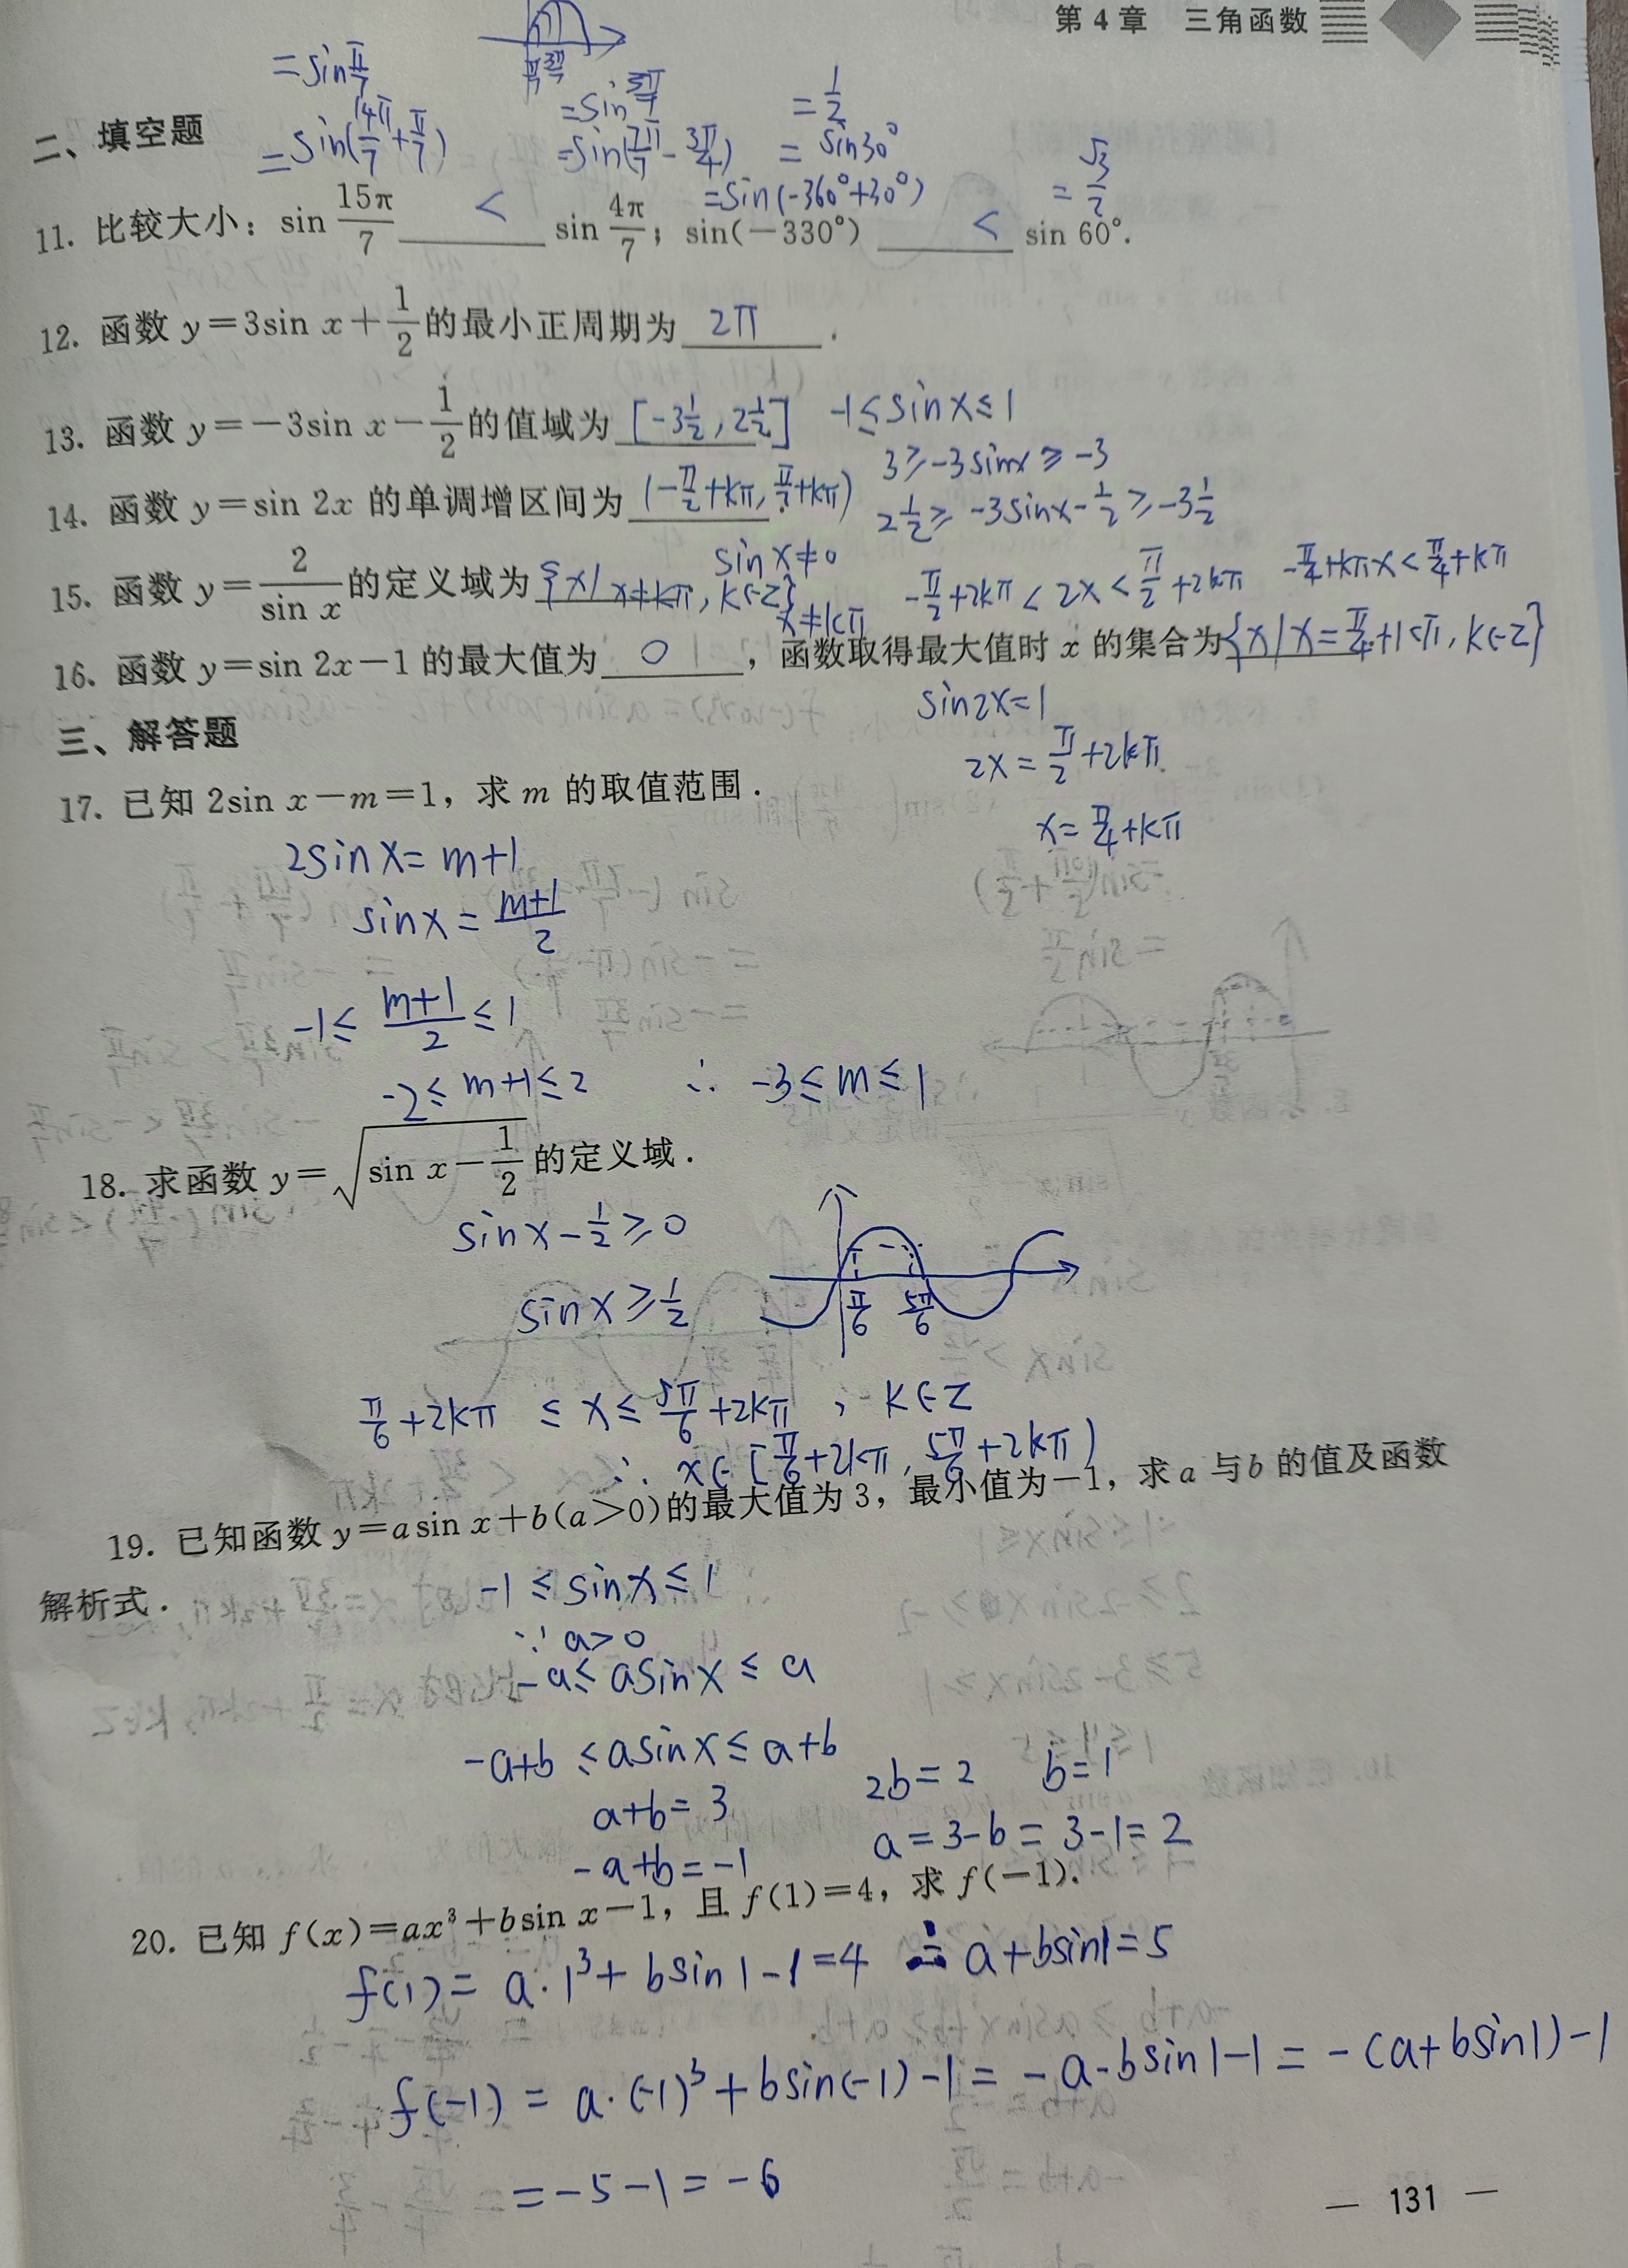 第 4 章 三角函数
=sin π/7
π/7 3π/7
=sin 3π/7
=1/2
二、填空题
=sin(14π/7+π/7)
=sin(7π/7-3π/4)
=sin30°
=sin(-360°+30°)
=√3/2
11. 比较大小：sin 15π/7 < sin 4π/7；sin(-330°) < sin 60°.
12. 函数 y=3sin x+1/2 的最小正周期为 2π .
13. 函数 y=-3sin x-1/2 的值域为 [-3 1/2, 2 1/2] -1≤sinx≤1
3≥-3sinx≥-3
14. 函数 y=sin 2x 的单调增区间为 (-π/2+kπ, π/2+kπ) 2 1/2≥-3sinx-1/2≥-3 1/2
sinx≠0
15. 函数 y=2/sin x 的定义域为 {x|x≠kπ, k∈Z} -π/2+2kπ<2x<π/2+2kπ -π/4+kπx<π/4+kπ
x≠kπ
16. 函数 y=sin 2x-1 的最大值为 0 ，函数取得最大值时 x 的集合为 {x|x=π/4+kπ, k∈Z}
sin2x=1
三、解答题
2x=π/2+2kπ
17. 已知 2sin x-m=1，求 m 的取值范围.
x=π/4+kπ
2sinx=m+1
sinx=(m+1)/2
-1≤(m+1)/2≤1
-2≤m+1≤2 ∴ -3≤m≤1
18. 求函数 y=√(sin x-1/2) 的定义域.
sinx-1/2≥0
sinx≥1/2
π/6 5π/6
π/6+2kπ ≤x≤5π/6+2kπ , k∈Z
∴ x∈[π/6+2kπ, 5π/6+2kπ)
19. 已知函数 y=asin x+b(a>0)的最大值为 3，最小值为-1，求 a 与 b 的值及函数
解析式.
-1≤sinx≤1
∵ a>0
-a≤asinx≤a
-a+b≤asinx≤a+b
2b=2 b=1
a+b=3
a=3-b=3-1=2
-a+b=-1
20. 已知 f(x)=ax³+bsin x-1，且 f(1)=4，求 f(-1).
f(1)=a·1³+bsin1-1=4 ∴a+bsin1=5
f(-1)=a·(-1)³+bsin(-1)-1=-a-bsin1-1=-(a+bsin1)-1
=-5-1=-6
— 131 —